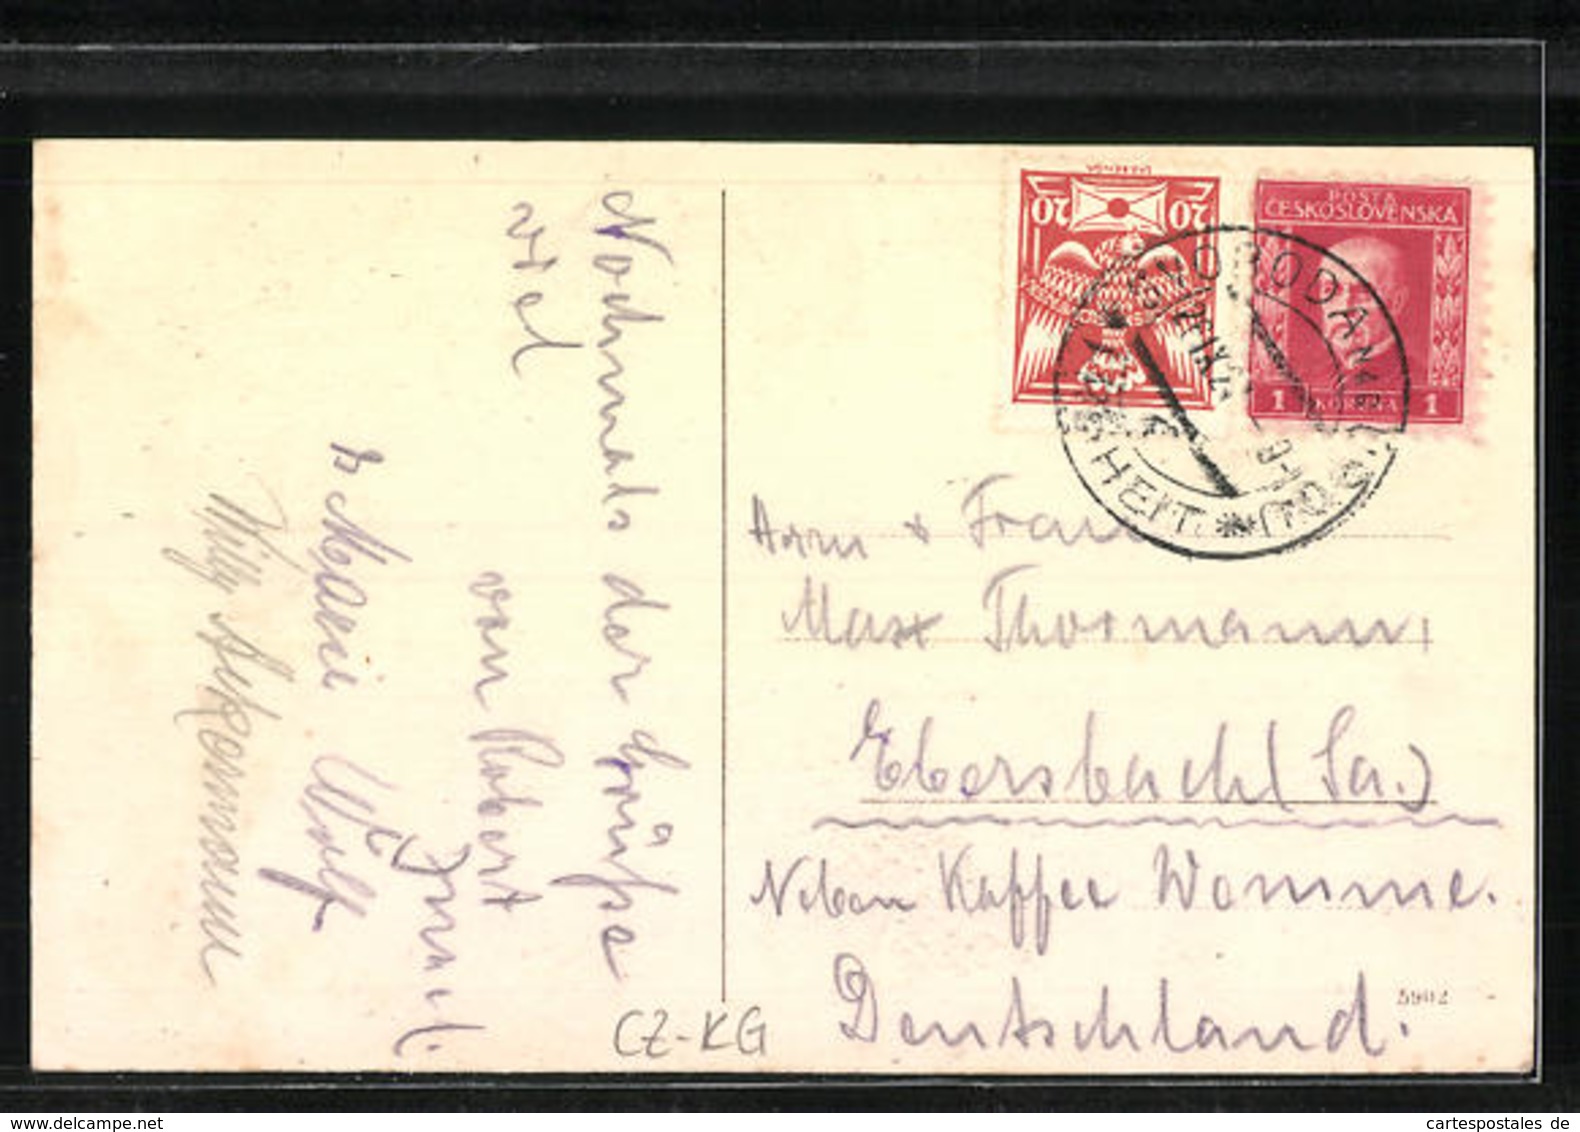 Nochmals der Grüße
viel
von Robert
u. Marie Wolf
Willy
CZ-KG
20 20
POŠTA
ČESKOSLOVENSKA
1 KORUNA 1
SVOBODA NAD
HEIT
Herrn & Frau
Max Thormann,
Ebersbach (Sa.)
Neben Kaffee Womme.
Deutschland.
5902
www.delcampe.net
cartespostales de